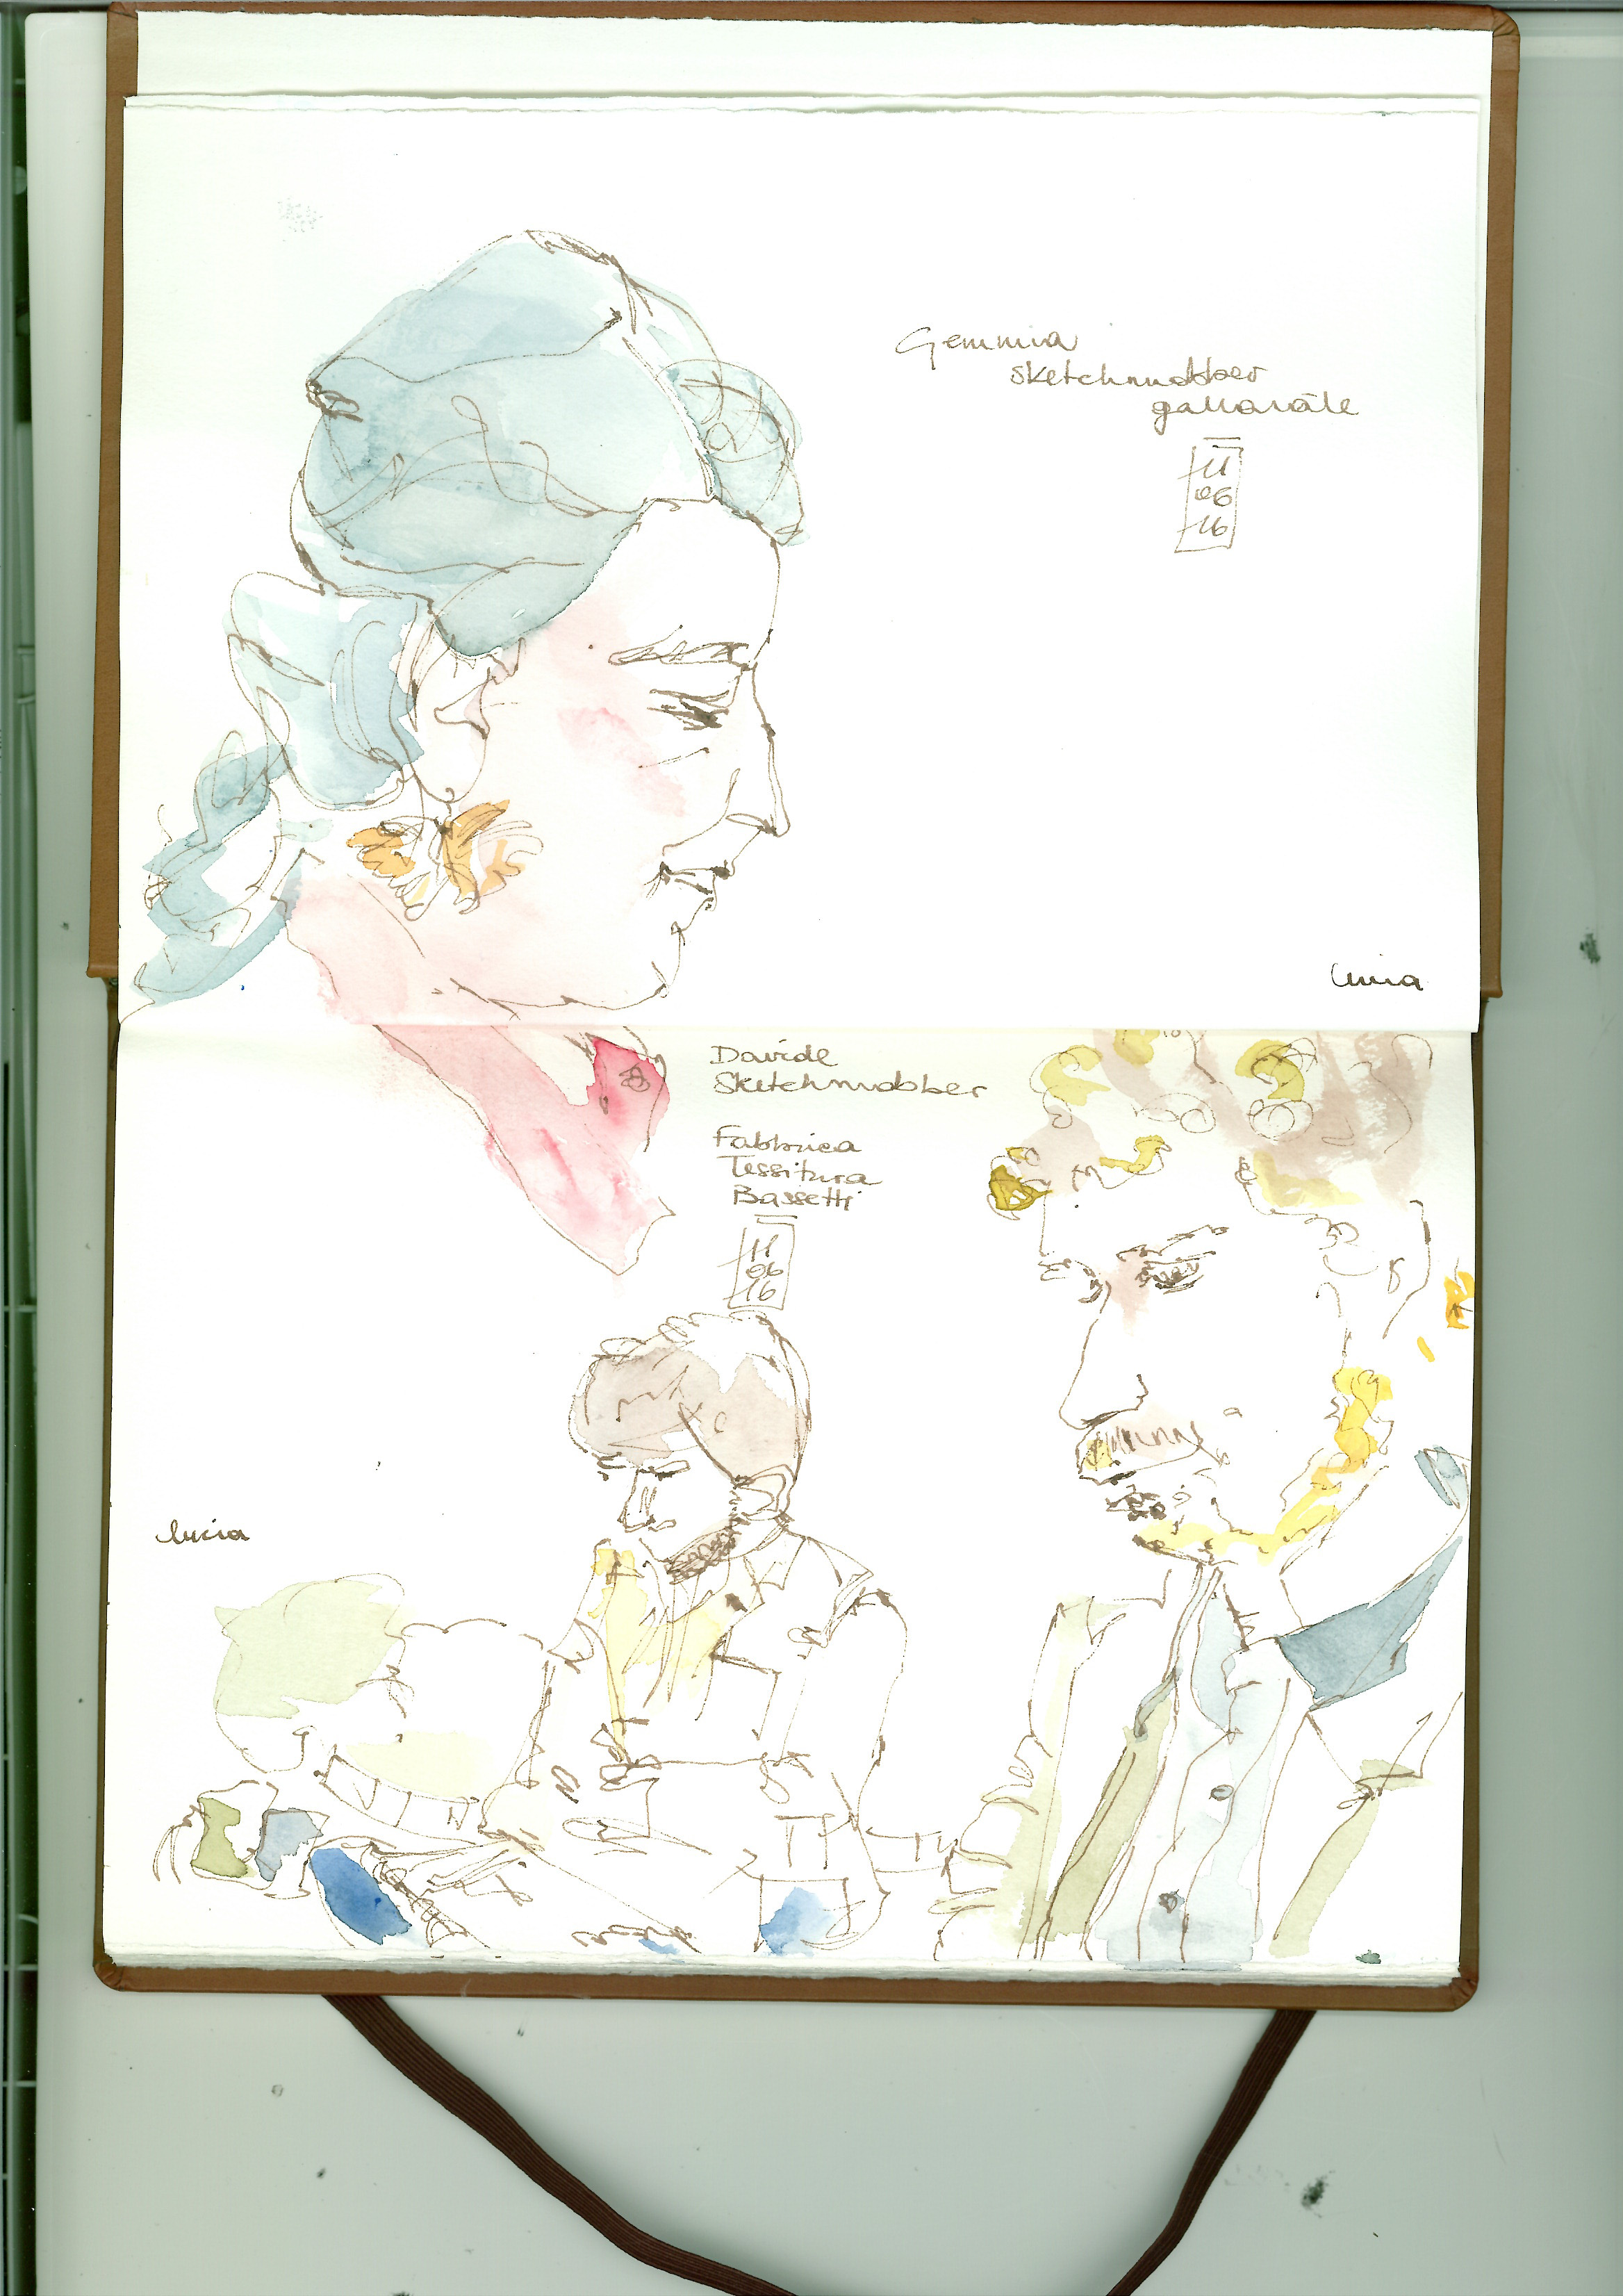 Gemmia
sketchmobber
gallarate
11
06
16
lucia
Davide
Sketchmobber
Fabbrica
Tessitura
Bassetti
11
06
16
lucia